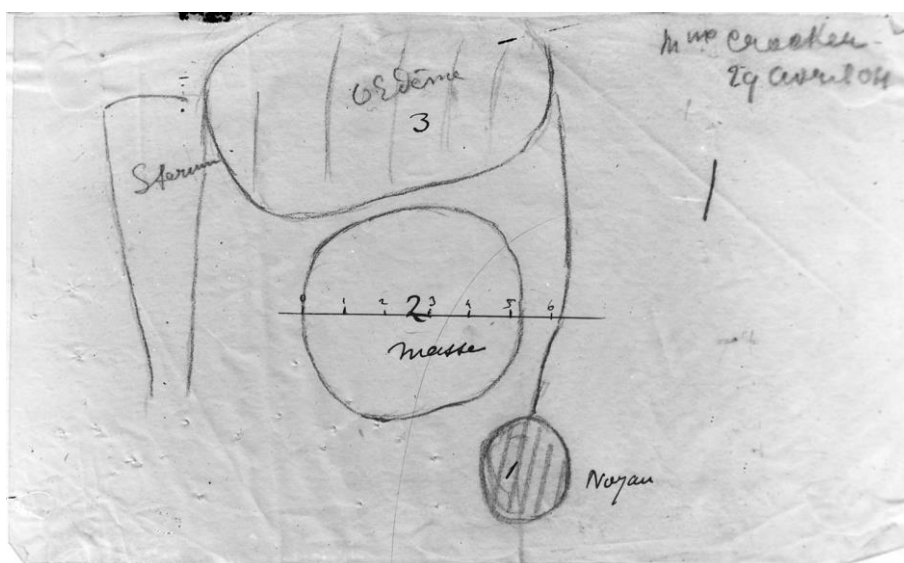 Mme Crocker
29 avril 04
OEdème
3
Sternum
1
0 1 2 3 4 5 6
2
masse
1
Noyau